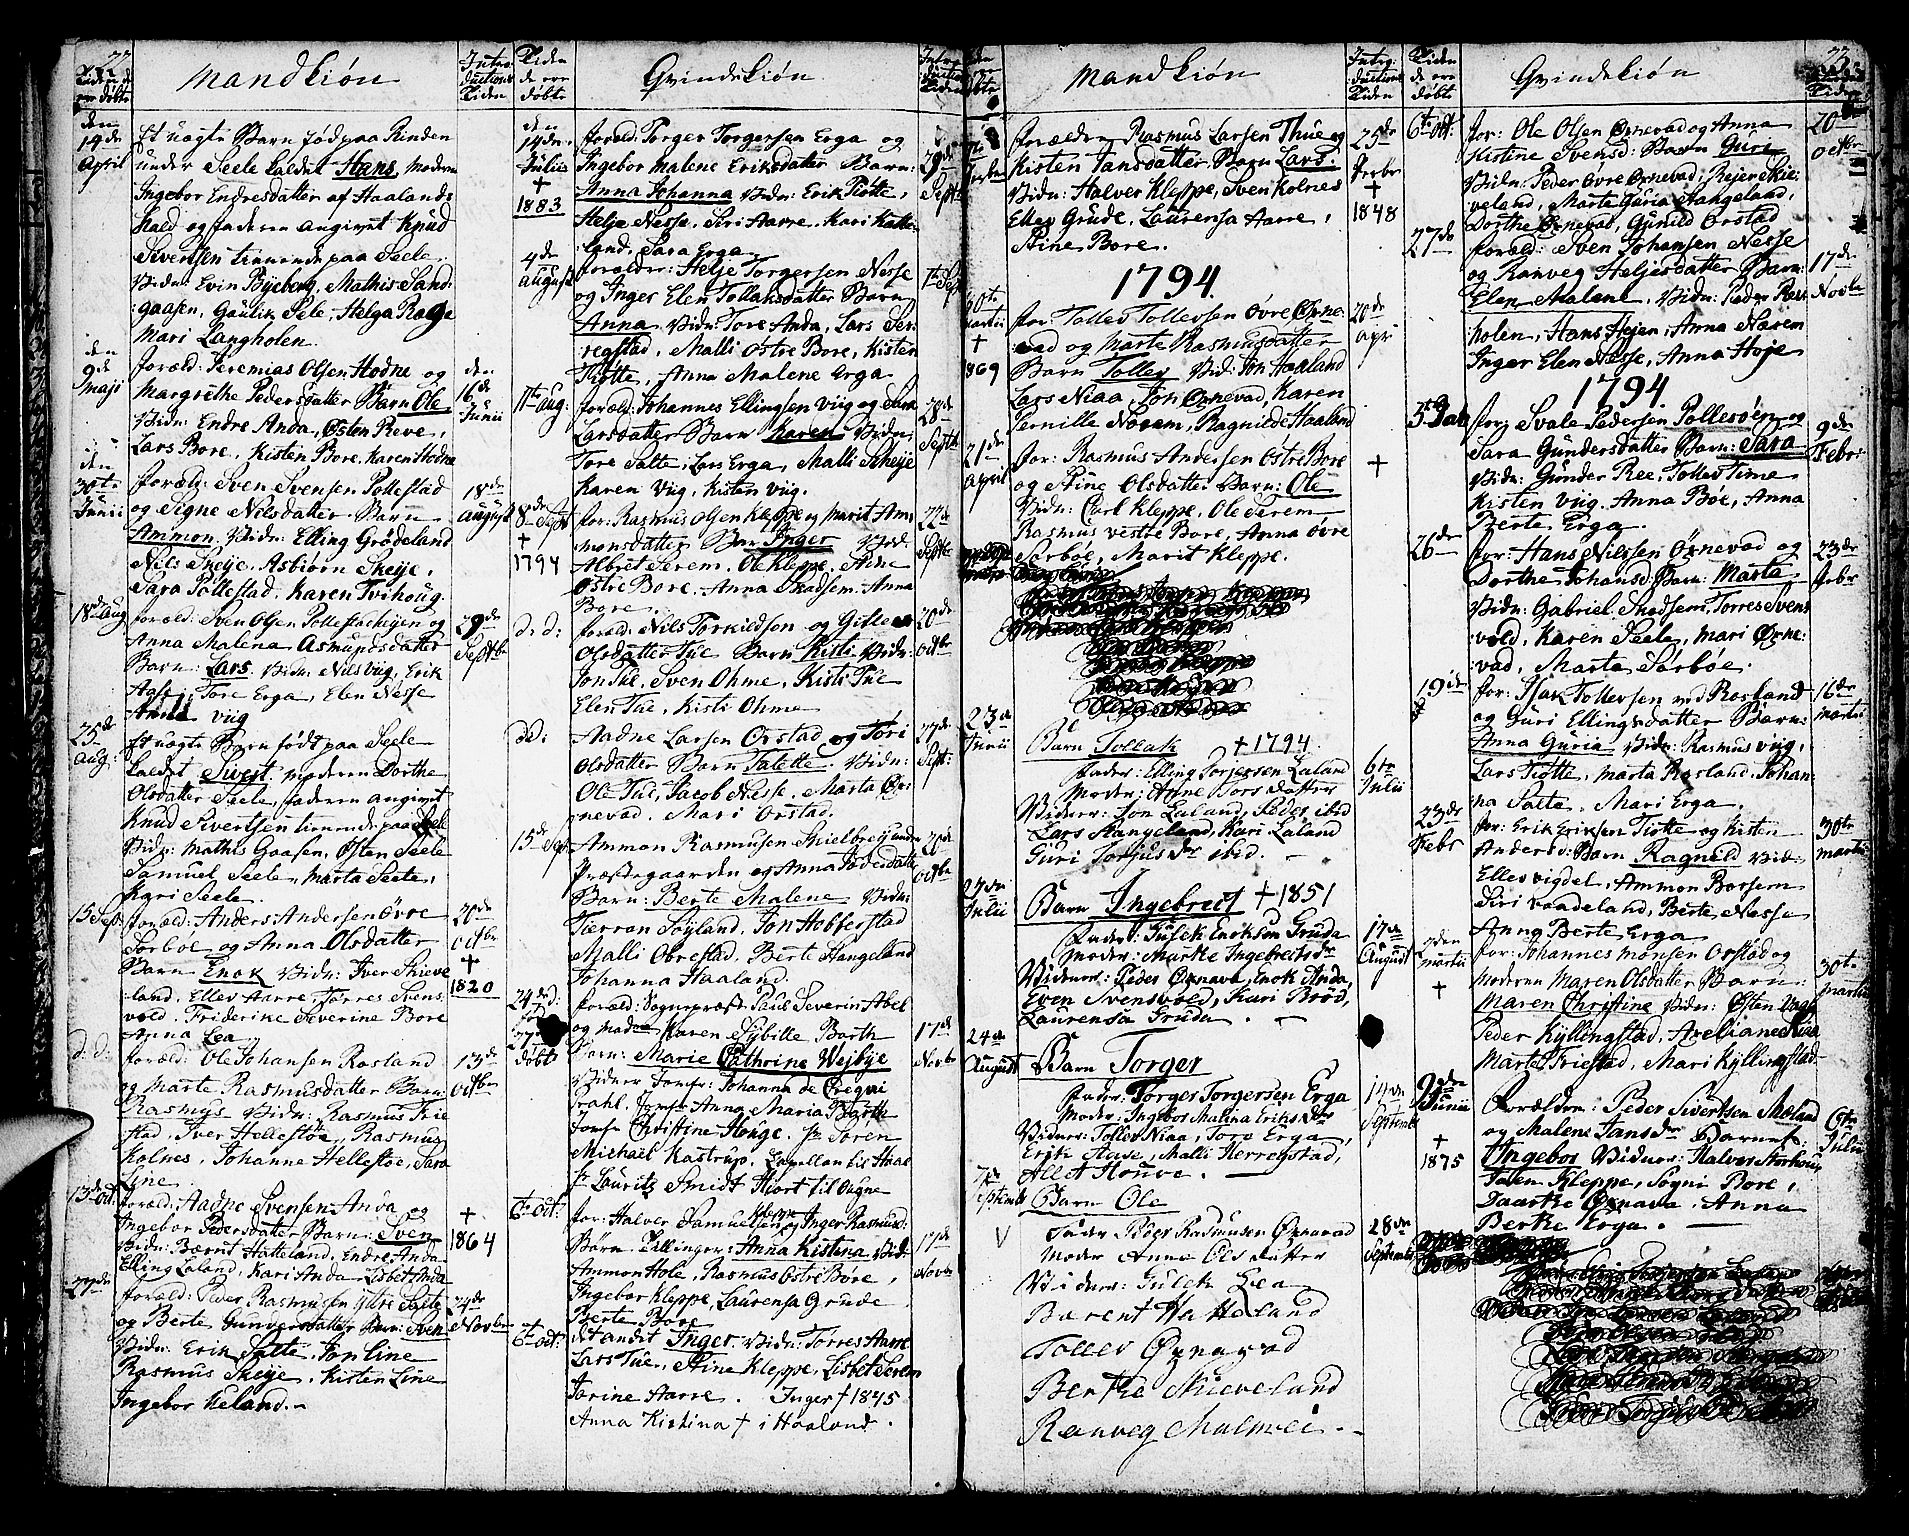 22
Mandkiøn
den
19de
April
Et uægte Barn fød paa Rinden
under Seele kaldet Hans, Moderen
Ingebor Endresdatter af Haalands
hald og faderen angivet Knud
Sivensen tienende paa Seele.
Bidn: Evin Byeberg, Mathis Sand
gaasen, Gaulik Sele, Helga Rage
Mari Langholen.
den
9de
maji
foræld: Jeremias Olsen Hodne og
Margrethe Pedersdatter Barn Ole
Vidn: Endre Anda, Østen Reve,
Lars Bore, Kisten Bore, Karen Hodne
den
16de
Junii
den
30te
Junii
foræld: Sven Svensen Pollestad
og Signe Nilsdatter Barn
Ammon. Vidn: Elling Grødeland
Nils Skeije, Asbiørn Skeije,
Sara Pollestad, Karen Tvihoug
18de
August
18de aug
foræld: Sven Olsen Pollestad og
Anna Malena Asmundsdatter
Barn: Lars. Vidn: Nils viig, Erik
Aase, Tore Erga, Elen Nesse
Anna viig
29de
Septbr
25de
aug:
Et uægte Barn født paa Seele
kaldet Sivert. moderen Dorthe
Olsdatter Seele, faderen angivet
Knud Sivertsen tienende paa Seele
Vidn: Mathis Gaasen, Østen Seele
Samuel Seele, Marta Seele,
Kari Seele.
15 Sept
foræld: Anders Andersen Øvre
Sorboe og Anna Olsdatter
Barn Enok Vidn: Iver Skieve
land, Ellev Aarre, Torres Svens
vold, Friderike Severine Bore
Anna Lea
20de
octbr
+
1820
d. d:
foræld: Ole Johansen Rosland
og Marte Rasmusdatter Barn
Rasmus Vidn: Rasmus Kie
stad, Iver Hellestøe, Rasmus
Kolnes, Johanne Hellestoe, Sara
Line
13de
octbr
13de oct.
foræld: Aadne Svensen Anda og
Ingebor Pedersdatter Barn: Sven
Vidn: Bærnt Hatteland, Endre Anda
Elling Laland, Kari Anda Lisbet Anda
+
1864
27de
foræld: Peder Rasmusen Yttre Salte
og Berte Gundersdatter Barn: Sven
Vidn: Erik Salte, Jon Line
Rasmus Skeije, Kisten Line
Ingebor Keland.
24de
Novbr
Qvindekiøn
den
14de
Julii
+
1883
foræld: Torger Torgersen Erga og
Ingebor Malene Eriksdatter Barn:
Anna Johanna Vidn: Erik Tiøtte,
Helje Nesse, Siri Aarre, Kari Hatte-
land, Sara Erga
29de
Septbr
4de
August
forælder: Helje Torgersen Nesse
og Inger Elen Tollaksdatter Barn
Anna, Vidn: Tore Anda, Lars Ser
regstad, Malli Østre Bore, Kisten
Tiøtte, Anna Malene Erga
1te Sept
11te aug:
foræld: Johannes Ellingsen viig og Sara
Larsdatter Barn Karen Vidn:
Tore Salte, Lars Erga, Malli Skeije
Karen Viig, Kisten viig.
28de
Septbr
8de Sept
+
1794
for: Rasmus Olsen Kleppe og Marit Am
monsdatter Barn Inger Vidn:
Albret Serem, Ole Kleppe, Stine
Østre Bore, Anna Skadsem, Anna
Bore.
22de
Septbr
d: d:
foræld: Nils Torkildson og Gitle
Olsdatter Tue Barn Kisti Vidn:
Jon Tue, Sven Ohme, Kisti Tue
Elen Tue, Kisti Ohme
20de
octbr
dd:
Aadne Larsen Orstad og Tori
Olsdatter Barn Talette. Vidn:
Ole Tue, Jacob Nesse, Marta Øx
nevad, Mari Orstad.
27de
Sept:
15de Sept
Ammon Rasmusen Skielbreij under
Præstegaarden og Anna Tordesdatter
Barn: Berte Malene Vidn:
Tierran Søyland, Jon Hobberstad
Malli Obrestad, Berte Hangeland
Johanna Haaland.
20de
octbr
24de d:
fød
27de
døbte
foræld: Sognepræst Paus Severin Abel
og Madme Karen Sybille Barth
Barn: Marie Cathrine Wejbye
Vidner Jomfr: Johanna de Crequi
Dahl. Jomfr Anna Maria Barth
Jomfr Christine Houge. Hr Søren
Michael Kastrup. Capellan til Haal
Hr Lauritz Smidt Hiort til Ougne
17de
Novbr
6te oct:
for: Halver Samuelsen Kleppe og Inger Rasmusd:
Børn: Tvillinger: Anna Kistina Vid:
Ammon Hole, Rasmus Østre Bore,
Ingebor Kleppe, Laurensa Grude
Berte Bore
17de
Novbr
6te oct:
det andet Inger. Vidn: Torres Aarre
Lars Tue, Stine Kleppe, Lisbet Serem
Jorine Aarre. Inger + 1845
Anna Kistina + i Haaland.
Mandkiøn
forælder Rasmus Larsen Thue og
Kisten Jansdatter Barn Lars.
Vidn: Halver Kleppe, Sven Kolnes
Ellev Grude, Laurensa Aarre,
Stine Bore.
25de
+
1848
1794.
30te
Martii
+
1869
for: Tollev Tollevsen Øvre Øxne
vad og Marte Rasmusdatter
Barn Tollev Vid: Jon Haaland
Lars Niaa, Jon Øxnevad, Karen
Pernille Norem, Ragnilde Haaland
20de
apr
21de
April
for: Rasmus Andersen Østre Bore
og Stine Olsdatter Barn: Ole
Vidn: Carl Kleppe, Ole Serem
Rasmus vestre Bore, Anna øvre
Sørbøe, Marit Kleppe.
+
23de
Junii
Barn Tollak + 1794.
Fader: Elling Torjersen Laland
Moder: Anne Torsdatter
Vidner: Jon Laland, Peder ibid
Lars Stangeland, Kari Laland
Guri Torjusdr ibid.
6te
Julii
27de
Julii
Barn Ingebrect + 1851
Fader: Gulek Erikson Gruda
Moder: Marthe Ingebreitsdr
Vidner: Peder Øxnava, Enok Anda,
Even Svensvold, Kari Brød,
Laurensa Gruda.
17de
August
24de
August
Barn Torger
Fader: Torger Torgersen Erga
Moder: Ingebor Malina Eriksdr
Vidner: Tollev Niaa, Tore Erga,
Erik Aase, Malli Herregstad,
Allet Houve.
14de
Septembr
7de
Septembr
Barn Ole
Fader Peder Rasmusen Øxnavad
Moder Anna Olsdatter
Vidner: Gulek Lea
Barent Hatteland
Tollev Øxnavad
Berthe Skieveland
Ranveg Malmei.
28de
Septembr
23
Qvindekiøn
6te oct:
for: Ole Olsen Øxnevad og Anna
Kistine Svensd: Barn Guri
Vidn: Peder Øvre Øxnevad, Reier Skie
veland, Marta Guria Stangeland,
Dorthe Øxnevad, Gunild Orstad
20de
octbr
27de
foræld: Sven Johansen Nesse
og Ranveg Heljesdatter Barn:
Elen Malene, Vidn: Peder Ree
holen, Hans Hojen, Anna Narem
Inger Elen Nesse, Anna Hoje
17de
Novbr
1794.
5te Jan
for: Svale Pedersen Pollesøen og
Sara Gundersdatter Barn: Sara
Vidn: Gunder Ree, Tollev Time
Kisten viig, Anna Boe, Anna
Berte Erga.
9de
Febr:
26de
for: Hans Nilssen Øxnevad og
Dorthe Johansd: Barn: Marta
Vidn: Gabriel Skadsem, Torres Svens
vold, Karen Seele, Mari Øxne
vad, Marta Sørbøe.
23de
Febr
19de
for: Isak Tollevsen ved Rosland
og Guri Ellingsdatter Barn:
Anna Guria Vidn: Rasmus viig,
Lars Tiøtte, Marta Rosland, Johan
na Salte, Mari Erga.
16de
Martii
23de
Febr
for: Erik Eriksen Tiøtte og Kisten
Andersd: Barn Ragnild Vid:
Ellev vigdel, Ammon Borsem
Siri vaadeland, Berte Nesse
Anna Berte Erga
30te
Martii
7den
Martii
+
for: Johannes Monsen Orstad og
Moderen Maren Olsdatter Barn:
Maren Christine Vidn: Østen
Peder Kyllingstad, Axeliane
Marte Friestad, Mari Kyllingstad
30te
Martii
9den
Junii
+
1875
Forældre: Peder Sivertsen Møland
og Malene Jansdr Barnet
Ingebor Vidner: Halver Storhoug
Salen Kleppe, Sogni Bore,
Taarke Øxnava, Anna
Berthe Erga.
6te
Julii